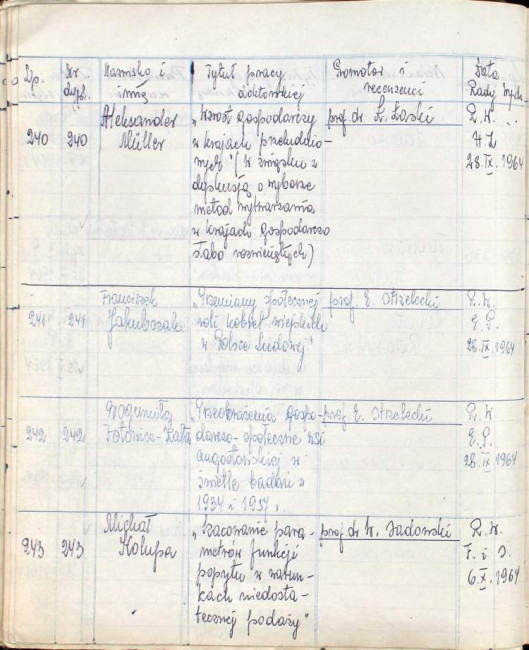 Lp. Nr dypl. Nazwisko i imię Tytuł pracy doktorskiej Promotor i recenzenci Data Rady Wydz.
240 240 Aleksander Müller „Wzrost gospodarczy prof. dr K. Łaski R. W.
w krajach przeludnio- H. Z.
nych" (w związku z 28.IX.1964
dyskusją o wyborze
metod wytwarzania
w krajach gospodarczo
słabo rozwiniętych)
241 241 Franciszek Jakubczak „Przemiany społecznej prof. E. Strzelecki R. W.
roli kobiet wiejskich E. P.
w Polsce Ludowej" 28.IX.1964
242 242 „Przeobrażenia gospo- prof. E. Strzelecki R. W.
darczo-społeczne wsi E. P.
w 28.IX.1964
świetle badań z
1934 i 1957 r.
243 243 Michał Kolupa „Szacowanie para- prof. dr W. Sadowski R. W.
metrów funkcji F. i S.
popytu w warun- 6.X.1964
kach niedosta-
tecznej podaży"